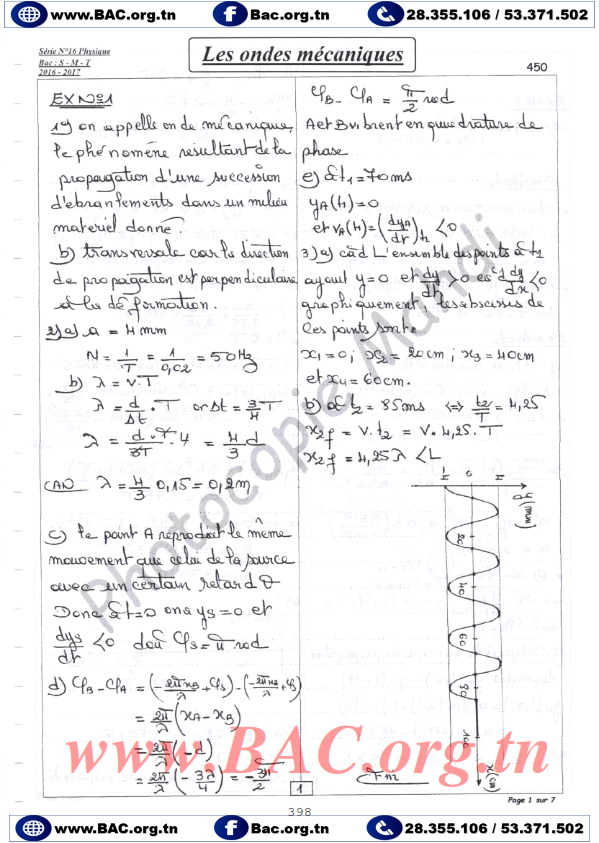 www.BAC.org.tn Bac.org.tn 28.355.106 / 53.371.502
Série N°16 Physique
Bac : S - M - T
2016 - 2017
Les ondes mécaniques
450
EX N°1
1°) on appelle onde mécanique,
le phénomène résultant de la
propagation d'une succession
d'ébranlements dans un milieu
matériel donné.
b) transversale car la direction
de propagation est perpendiculaire
à la déformation.
2) a) a = 4 mm
N = 1/T = 1/0,02 = 50 Hz
b) λ = v.T
λ = d/Δt . T or Δt = 3/4 T
λ = d.T/3T . 4 = 4/3 d
(AN) λ = 4/3 0,15 = 0,2 m
c) le point A reproduit le même
mouvement que celui de la source
avec un certain retard θ
Donc à t=0 on a ys = 0 et
dys/dt < 0 d'où φs = π rad
d) φB - φA = (-2πxB/λ + φs) - (-2πxA/λ + φs)
= 2π/λ (xA - xB)
= 2π/λ (-d)
= 2π/λ (-3λ/4) = -3π/2
φB - φA = π/2 rad
A et B vibrent en quadrature de
phase
e) à t1 = 70 ms
yA(t1) = 0
et vA(t1) = (dyA/dt)t1 < 0
3) a) càd L'ensemble des points à t1
ayant y=0 et dy/dt > 0 dy/dx < 0
graphiquement les abscisses de
ces points sont :
x1 = 0 ; x2 = 20 cm ; x3 = 40 cm
et x4 = 60 cm.
b) à t2 = 85 ms ⇔ t2/T = 4,25
x2f = v.t2 = v.4,25.T
x2f = 4,25 λ < L
-4 0 4 y(mm)
20
40
60
80
100
x(cm)
Fin
Photocopie Mahdi
www.BAC.org.tn
1
Page 1 sur 7
398
www.BAC.org.tn Bac.org.tn 28.355.106 / 53.371.502